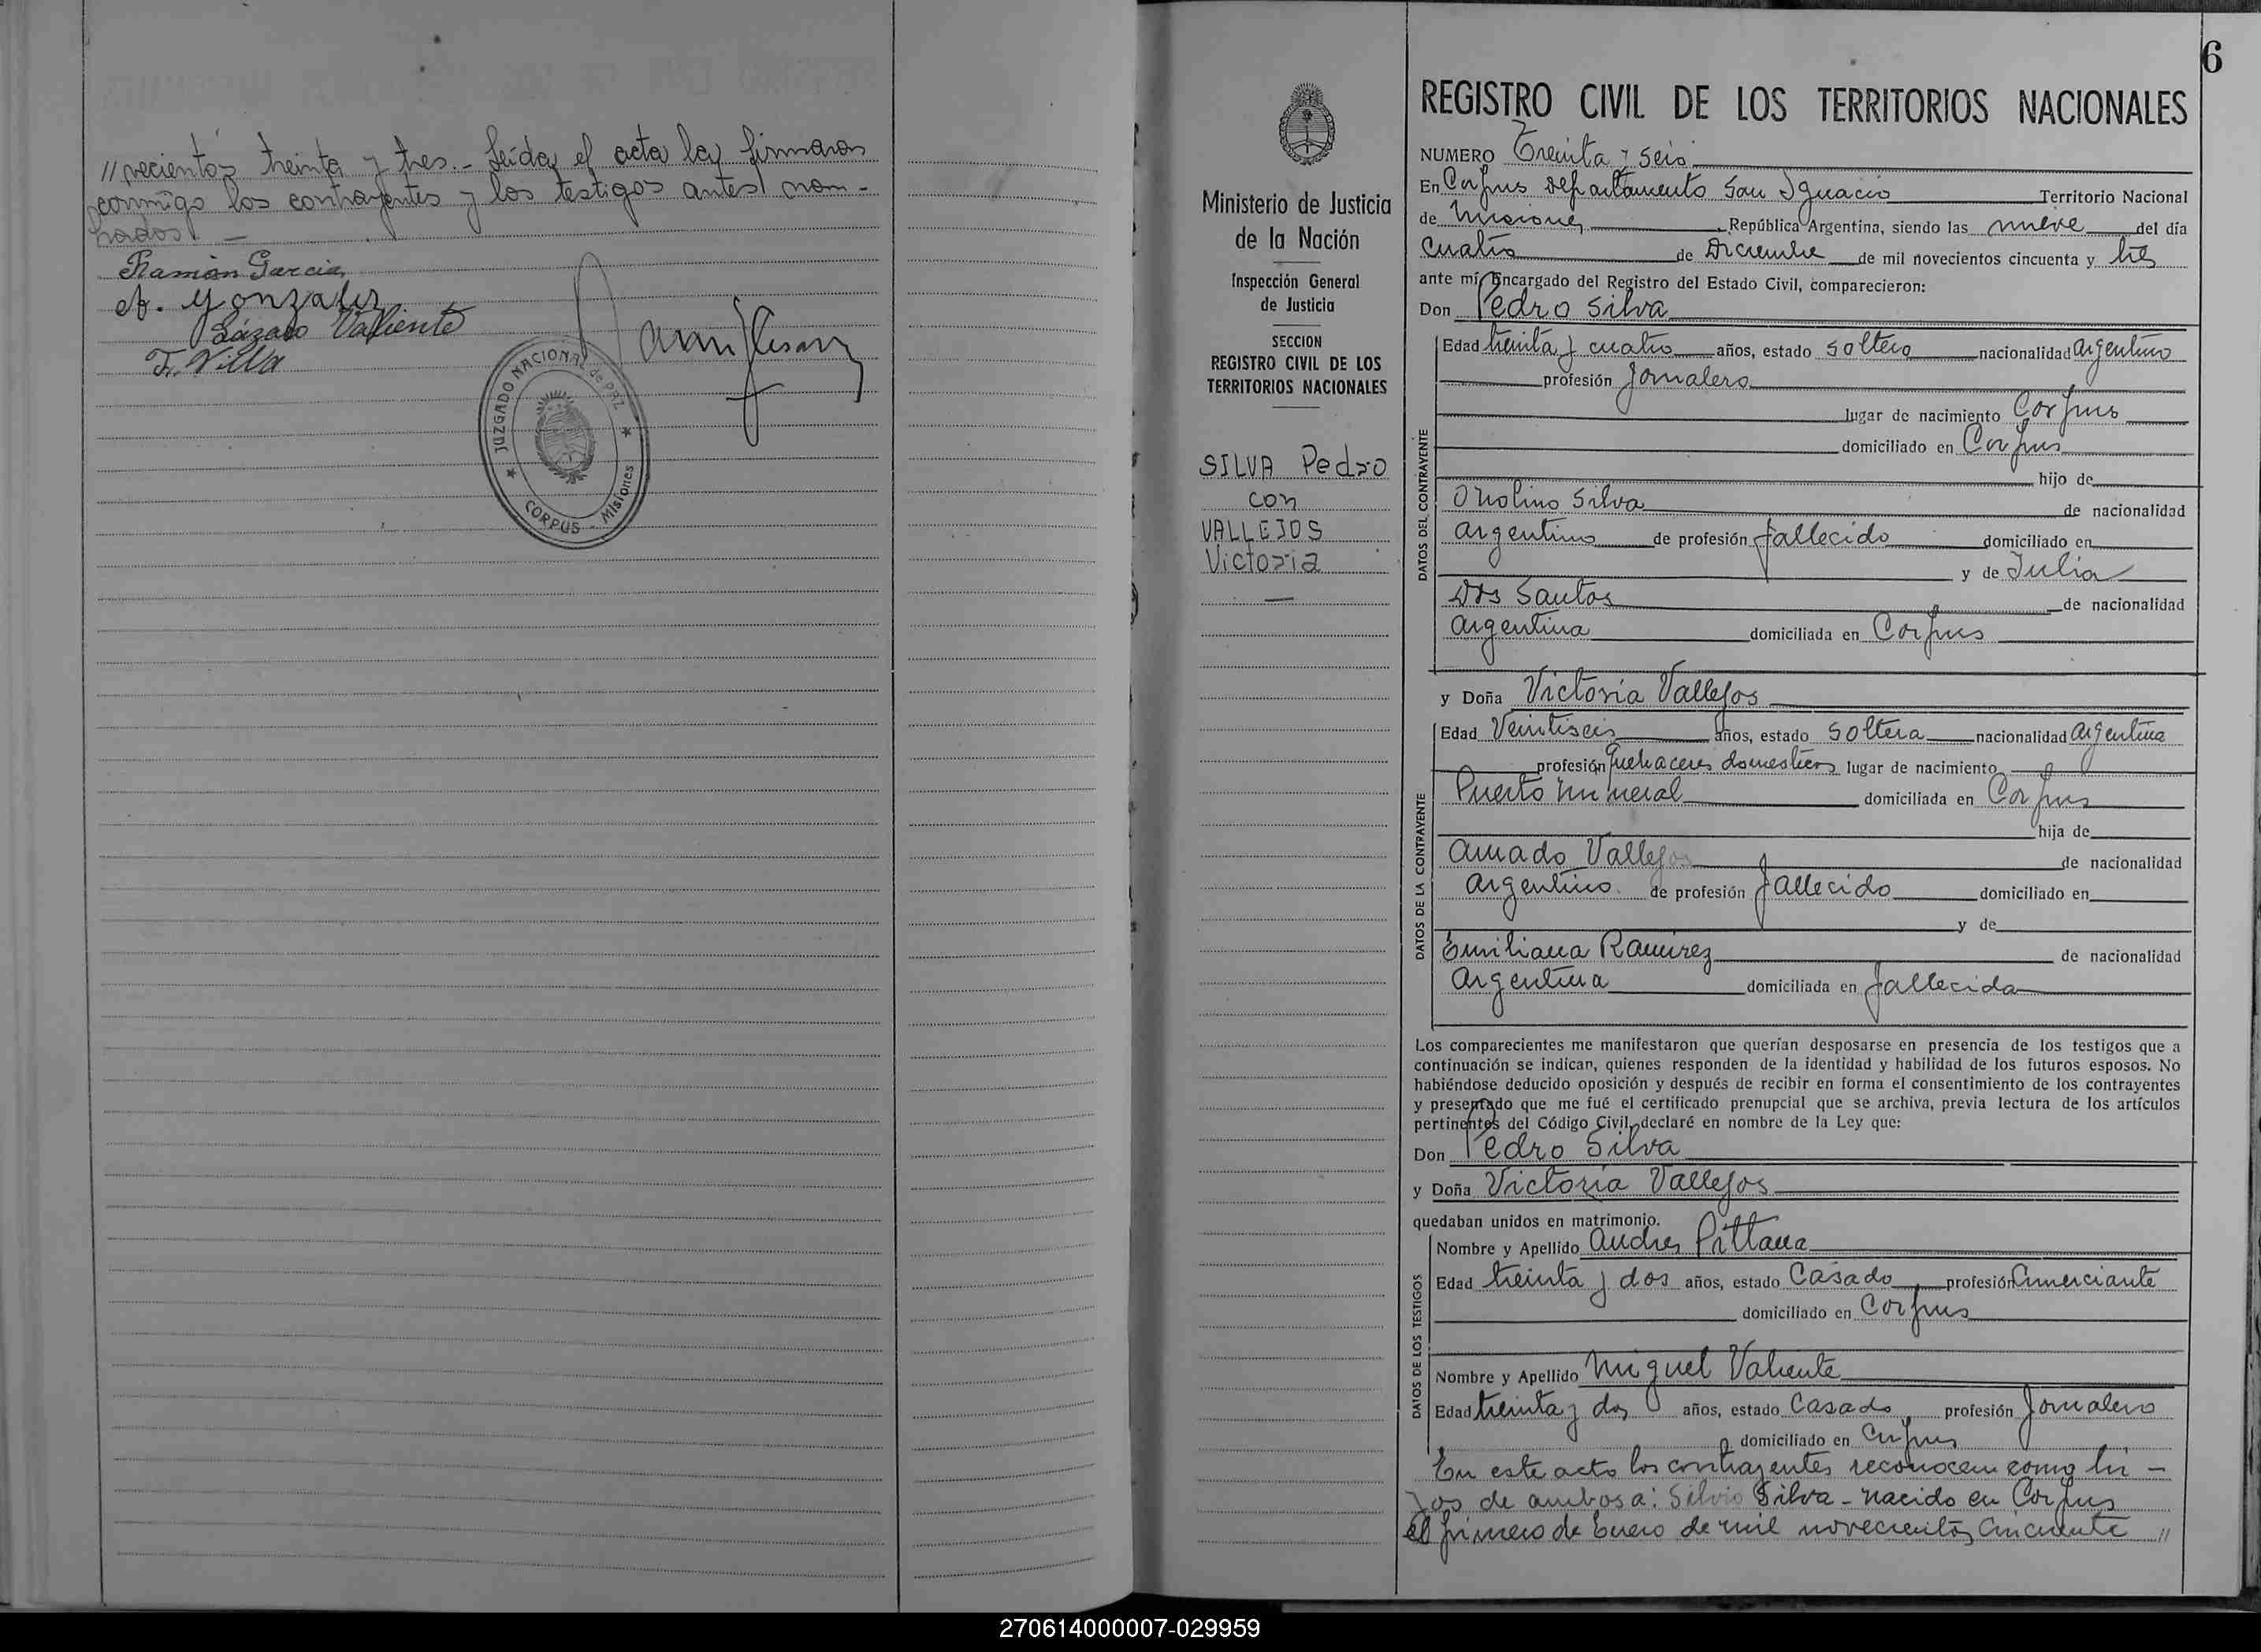 // vecientos treinta y tres.- Leída el acta la firmaron
conmigo los contrayentes y los testigos antes nom-
brados! —
Ramón Garcia
A. Gonzalez
Lázaro Valiente
F. Villa
JUZGADO NACIONAL de PAZ
CORPUS - Misiones
6
Ministerio de Justicia
de la Nación
Inspección General
de Justicia
SECCION
REGISTRO CIVIL DE LOS
TERRITORIOS NACIONALES
SILVA Pedro
con
VALLEJOS
Victoria
—
REGISTRO CIVIL DE LOS TERRITORIOS NACIONALES
NUMERO Treinta y seis
En Corpus Departamento San Ignacio Territorio Nacional
de Misiones República Argentina, siendo las nueve del día
cuatro de Diciembre de mil novecientos cincuenta y tres
ante mí Encargado del Registro del Estado Civil, comparecieron:
Don Pedro Silva
DATOS DEL CONTRAYENTE
Edad treinta y cuatro años, estado soltero nacionalidad argentino
profesión Jornalero
lugar de nacimiento Corpus
domiciliado en Corpus
hijo de
Silva de nacionalidad
argentino de profesión fallecido domiciliado en
y de Julia
Dos Santos de nacionalidad
argentina domiciliada en Corpus
y Doña Victoria Vallejos
DATOS DE LA CONTRAYENTE
Edad Veintiseis años, estado soltera nacionalidad argentina
profesión quehaceres domesticos lugar de nacimiento
Puerto Mineral domiciliada en Corpus
hija de
Amado Vallejos de nacionalidad
argentino de profesión fallecido domiciliado en
y de
Emiliana Ramirez de nacionalidad
argentina domiciliada en fallecida
Los comparecientes me manifestaron que querían desposarse en presencia de los testigos que a
continuación se indican, quienes responden de la identidad y habilidad de los futuros esposos. No
habiéndose deducido oposición y después de recibir en forma el consentimiento de los contrayentes
y presentado que me fué el certificado prenupcial que se archiva, previa lectura de los artículos
pertinentes del Código Civil, declaré en nombre de la Ley que:
Don Pedro Silva
y Doña Victoria Vallejos
quedaban unidos en matrimonio.
DATOS DE LOS TESTIGOS
Nombre y Apellido Andres Pittana
Edad treinta y dos años, estado Casado profesión Comerciante
domiciliado en Corpus
Nombre y Apellido Miguel Valiente
Edad treinta y dos años, estado Casado profesión Jornalero
domiciliado en Corpus
En este acto los contrayentes reconocen como hi-
jos de ambos a: Silvio Silva - nacido en Corpus
el primero de Enero de mil novecientos Cincuenta //
270614000007-029959